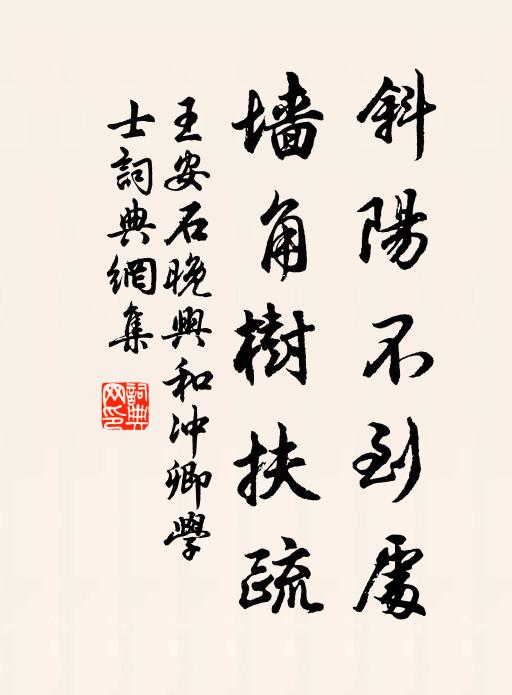 斜陽不到處
墙角樹扶疏
王安石晚興和冲卿學
士詞典網集
詞典
网印